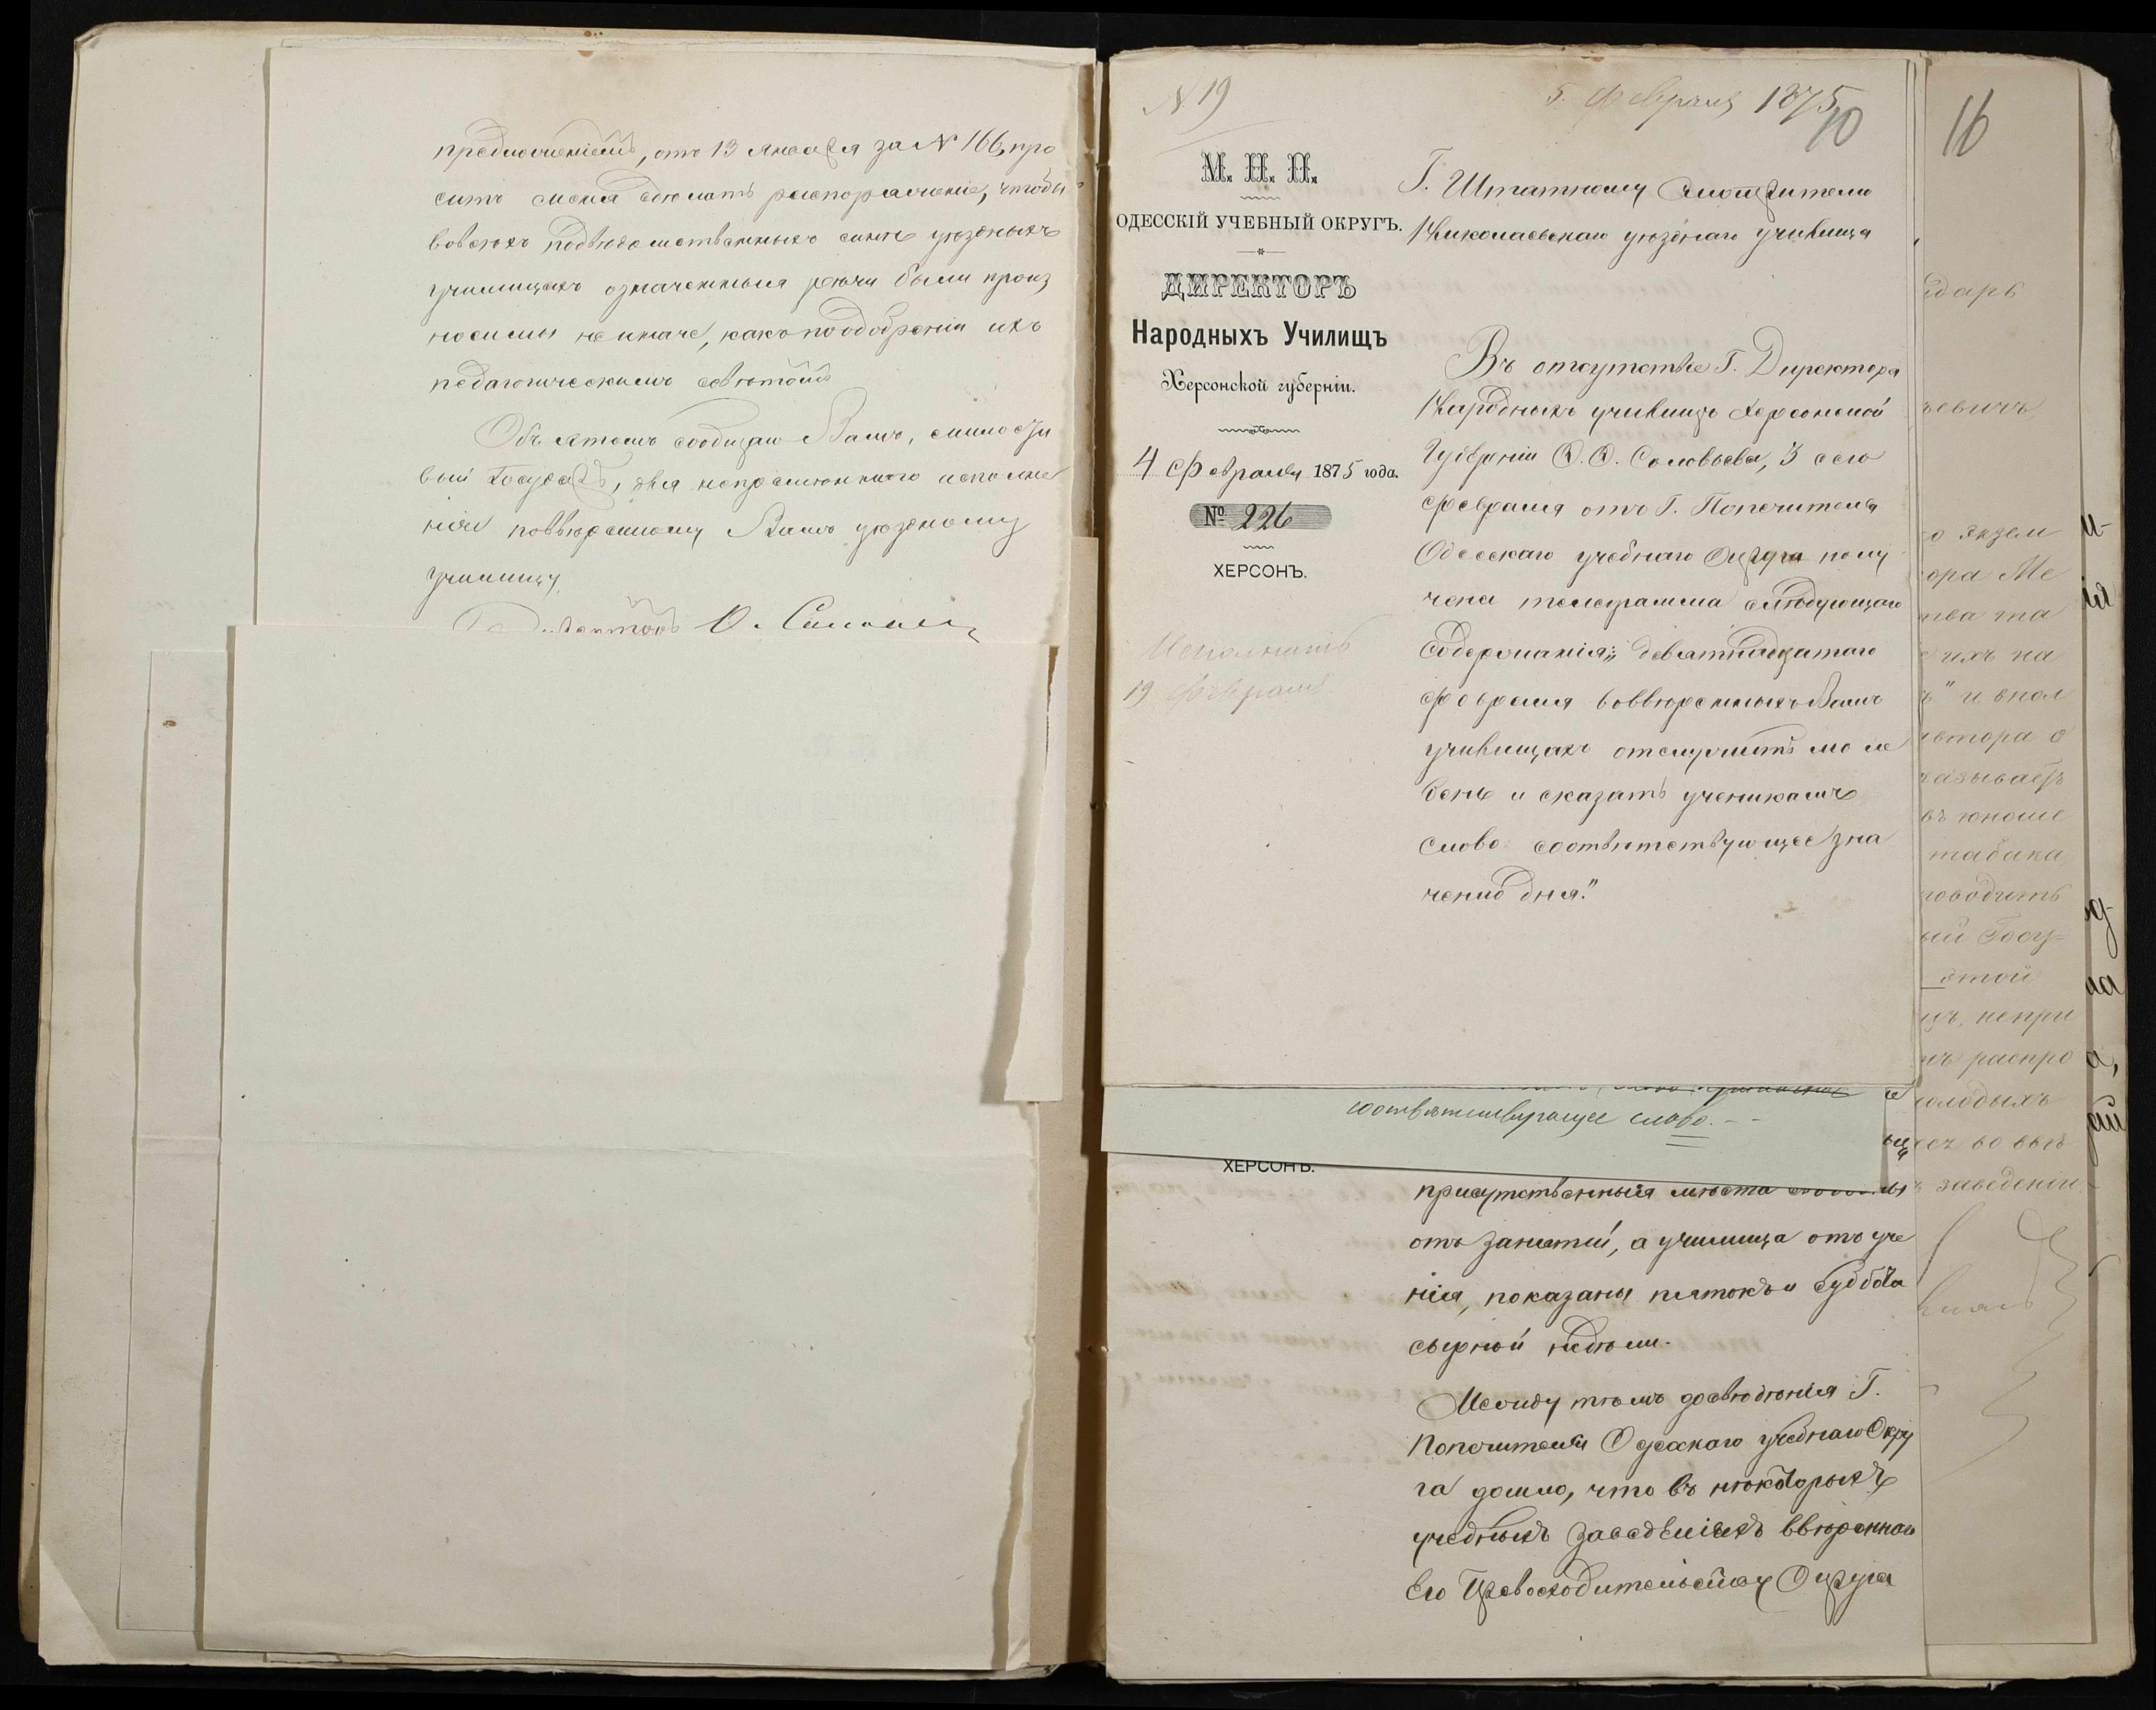 предложеніемъ, отъ 13 Января за № 166, про
ситъ меня сдѣлать распоряженіе, чтобы
вовсѣхъ подвѣдомственныхъ мнѣ уѣздныхъ
училищахъ означенныя рѣчи были произ
носимы не иначе, какъ поодобреніи ихъ
педагогическимъ совѣтомъ
Объ этомъ сообщаю Вамъ, милости
вый Государь, для непремѣннаго исполне
нія повѣренному Вамъ уѣздному
училищу.
Директоръ
№ 19
5. Февраля 1875
10
М. Н. П.
ОДЕССКІЙ УЧЕБНЫЙ ОКРУГЪ.
ДИРЕКТОРЪ
Народныхъ Училищъ
Херсонской губерніи.
4 Февраля 1875 года.
№ 226
ХЕРСОНЪ.
Исполнить
19 Февраля.
Г. Штатному Смотрителю
Николаевскаго уѣзднаго училища
Въ отсутствіе Г. Директора
Народныхъ училищъ Херсонской
Губерніи О. О. Соловьева, 3 сего
Февраля отъ Г. Попечителя
Одесскаго учебнаго Округа полу
чена телеграмма слѣдующаго
содержанія: „девятнадцатаго
Февраля вовѣренныхъ Вамъ
училищахъ отслужить моле
бенъ и сказать ученикамъ
слово соотвѣтствующее зна
ченію дня."
соотвѣтствующее слово. –
ХЕРСОНЪ.
присутственныя мѣста
отъ занятій, а училища отъ уче
нія, показаны пятокъ и суббота
сырной недѣли.
Между тѣмъ досвѣдѣнія Г.
Попечителя Одесскаго учебнаго Окру
га дошло, что въ нѣкоторыхъ
учебныхъ заведеніяхъ ввѣреннаго
Его Превосходительству Округа
16
дарь
ьевичъ
о экзем
ора Ме
тва та
ихъ на
ъ" и впол
втора о
казываетъ
въ юноше
табака
оводить
ый Госу-
этой
непри
распро
олодыхъ
заведеніи